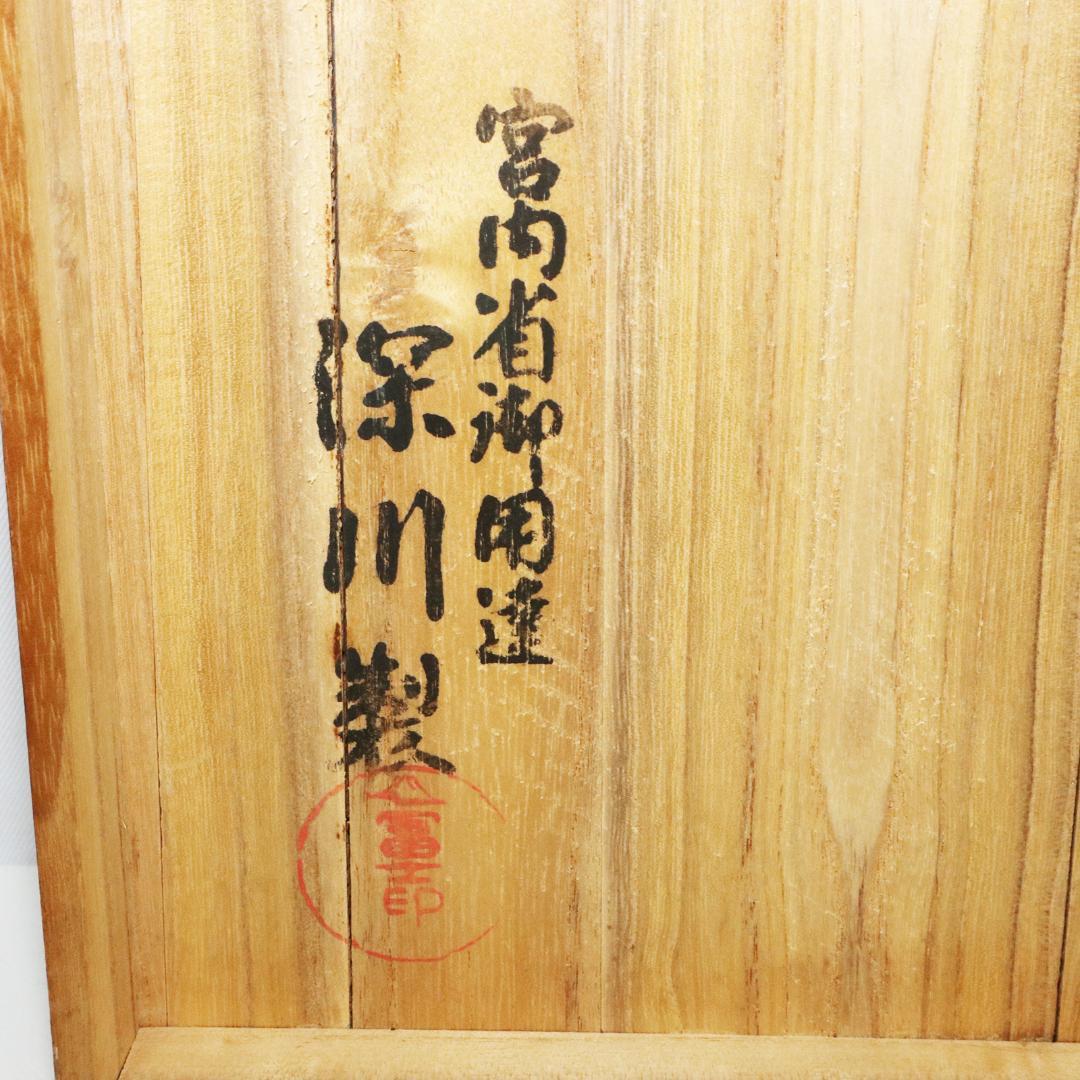 宮内省御用達
深川製
富士印